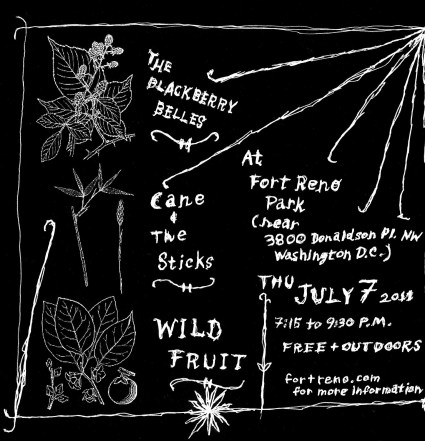 THE
BLACKBERRY
BELLES
Cane
&
The
Sticks
WILD
FRUIT
At
Fort Reno
Park
(near
3800 Donaldson Pl. NW
Washington D.C.)
THU JULY 7 2011
7:15 to 9:30 P.M.
FREE + OUTDOORS
fortreno.com
for more information